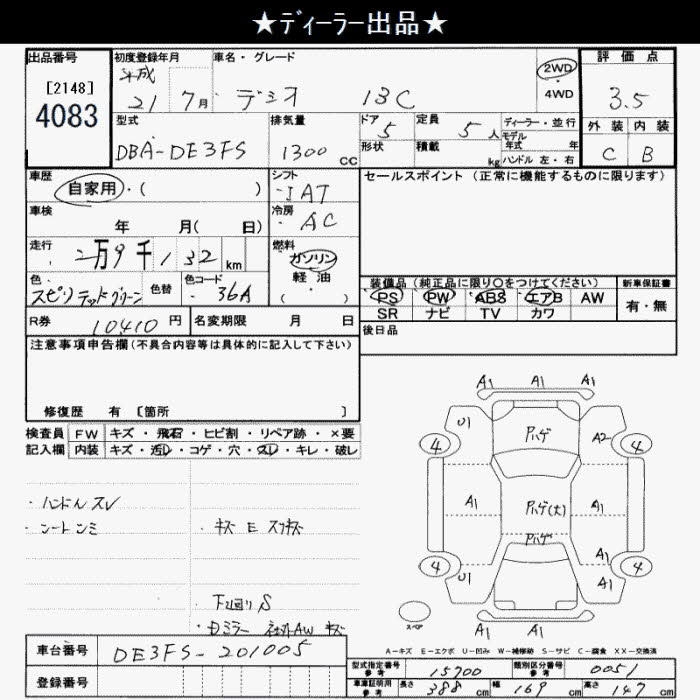 ★ディーラー出品★
出品番号
[2148]
4083
初度登録年月
平成
21 7月
車名・グレード
デミオ 13C
2WD
4WD
評価点
3.5
外装 内装
C B
型式
DBA-DE3FS
排気量
1300 cc
ドア 5
形状
定員 5 人
積載 kg
ディーラー・並行
モデル年式 年
ハンドル 左・右
車歴
自家用・( )
シフト
IAT
セールスポイント (正常に機能するものに限ります)
車検
年 月( 日)
冷房
AC
走行
二万9千132 km
燃料
ガソリン
軽油
( )
色
スピリテッドグリーン
色替
色コード
36A
装備品 (純正品に限り○をつけてください)
PS PW ABS エアB AW
SR ナビ TV カワ
新車保証書
有・無
R券 10410 円
名変期限 月 日
後日品
注意事項申告欄(不具合内容等は具体的に記入して下さい)
修復歴 有 〔箇所 〕
検査員
記入欄
FW キズ・飛石・ヒビ割・リペア跡・×要
内装 キズ・汚レ・コゲ・穴・スレ・キレ・破レ
・ハンドルスレ
・シートシミ
・キズ E スリキズ
・下廻り S
A1 A1 A1
U1 Pハゲ A2
4 4
A1 Pハゲ(大) A1
Pハゲ
A1
4 4
U1 A1
A1 A1
スペア
A-キズ E-エクボ U-凹み W-補修跡 S-サビ C-腐食 XX-交換済
車台番号 DE3FS-201005
登録番号
型式指定番号
参考
15700
類別区分番号
参考
0051
車庫証明用
参考
長さ 388 cm
幅 169 cm
高さ 147 cm